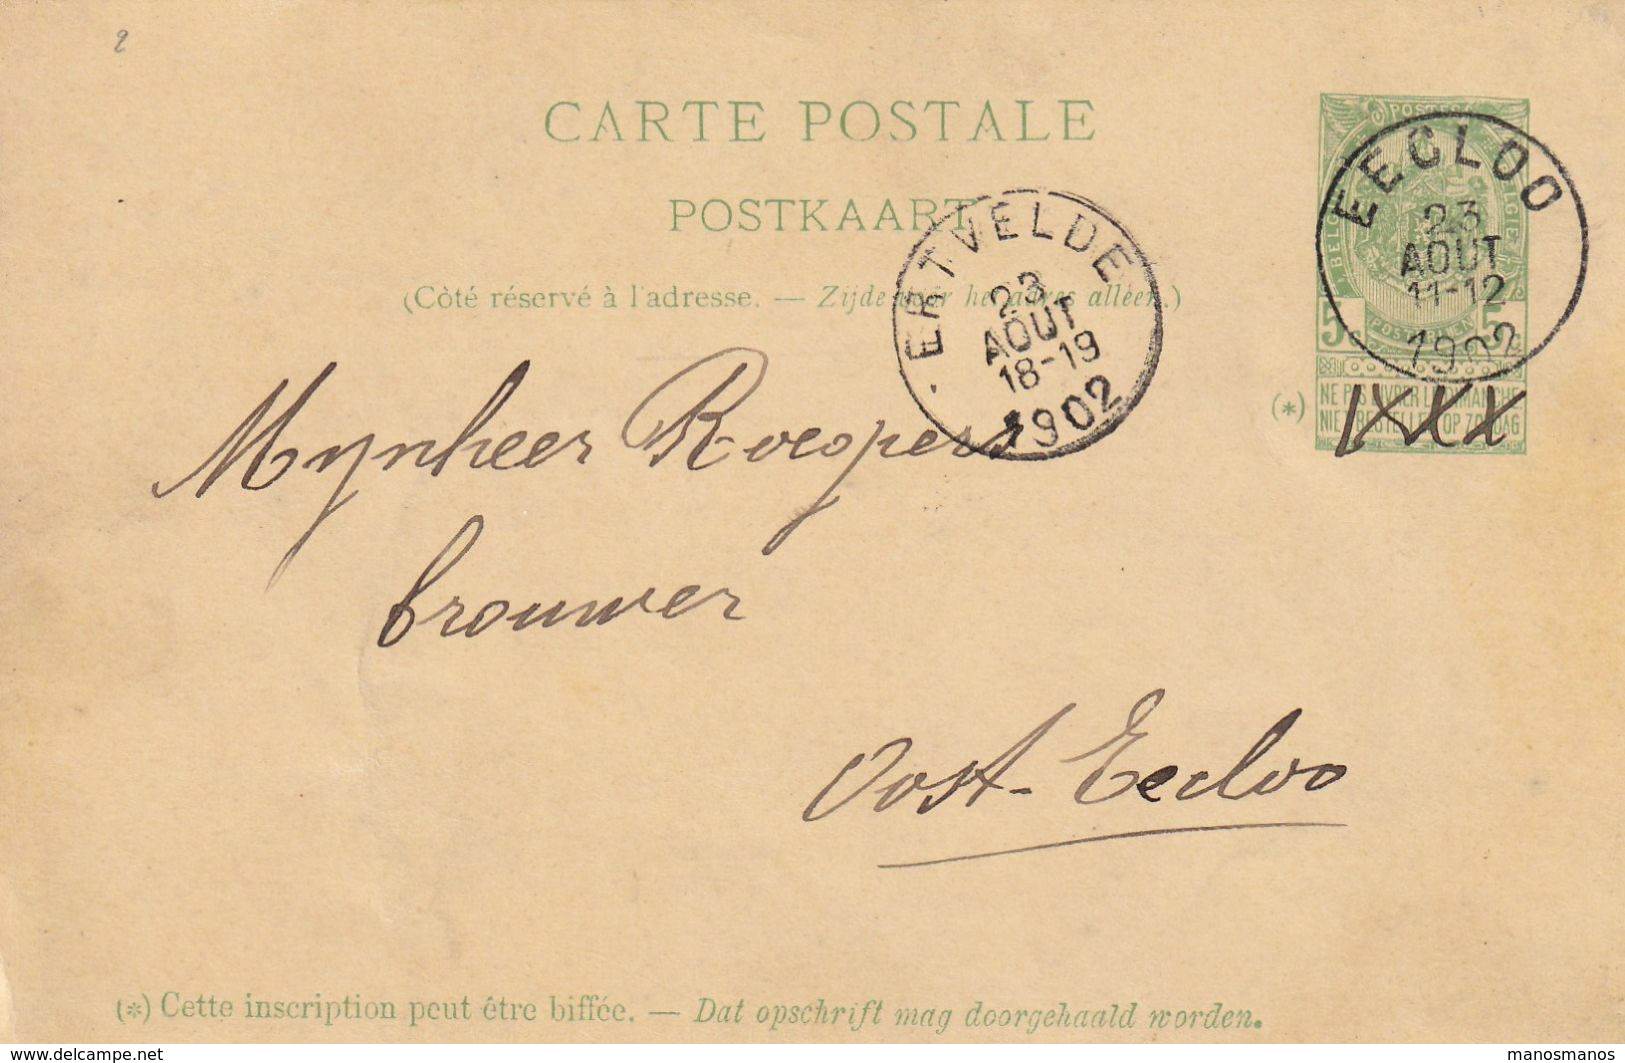 2
CARTE POSTALE
POSTKAART
(Côté réservé à l'adresse. — Zijde voor het adres alléén.)
POSTES
BELGIQUE BELGIË
5c POSTERIJEN 5c
(*) NE PAS LIVRER LE DIMANCHE
NIET BESTELLEN OP ZONDAG
EECLOO
23
AOUT
11-12
1902
ERTVELDE
23
AOUT
18-19
1902
Mynheer
brouwer
Oost-Eecloo
(*) Cette inscription peut être biffée. — Dat opschrift mag doorgehaald worden.
delcampe.net
manosmanos